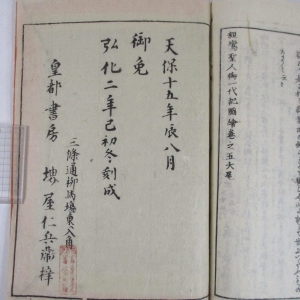 親鸞聖人御一代記圖繪巻之五大尾
天保十五年辰八月
御免
弘化二年巳初冬刻成
三條通柳馬場東入角
皇都書房 堺屋仁兵衞梓